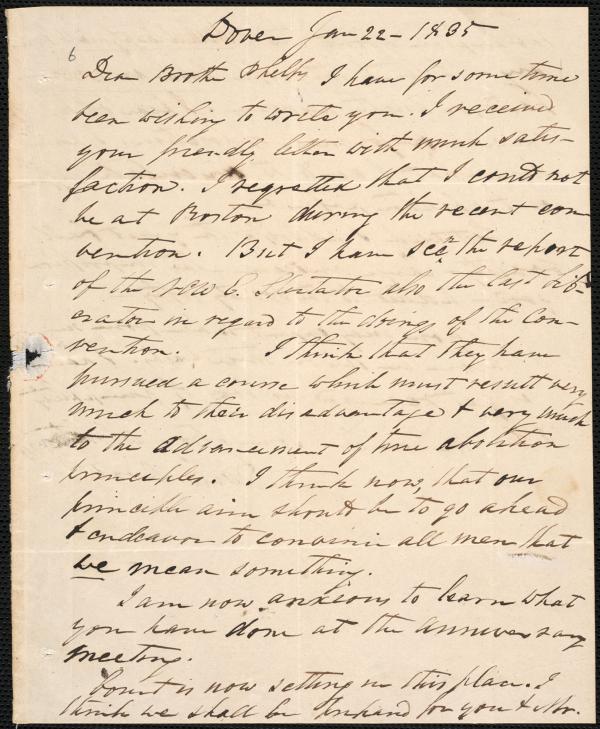 Dover Jan 22 - 1835
6
Dear Brother Phelps I have for some time
been wishing to write you. I received
your friendly letter with much satis-
faction. I regretted that I could not
be at Boston during the recent con-
vention. But I have seen the report
of the New E. Spectator also the last Lib-
erator in regard to the doings of the Con-
vention. I think that they have
pursued a course which must result very
much to their disadvantage & very much
to the advancement of true abolition
principles. I think now, that our
principle aim should be to go ahead
& endeavor to convince all men that
we mean something.
I am now anxious to learn what
you have done at the anniversary
meeting.
Court is now setting in this place. I
think we shall be for you & Mr.